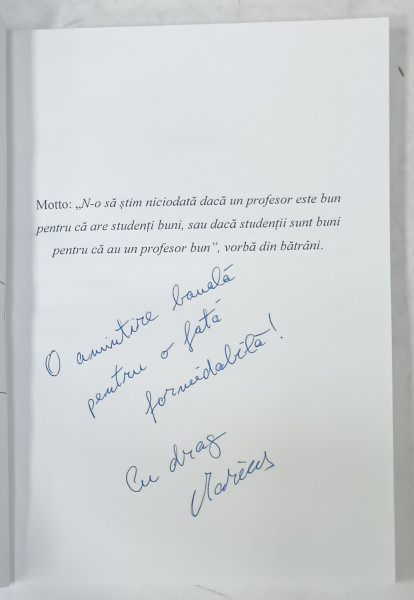 Motto: „N-o să știm niciodată dacă un profesor este bun
pentru că are studenți buni, sau dacă studenții sunt buni
pentru că au un profesor bun”, vorbă din bătrâni.
O amintire banală
pentru o fată
formidabilă!
Cu drag
Marius